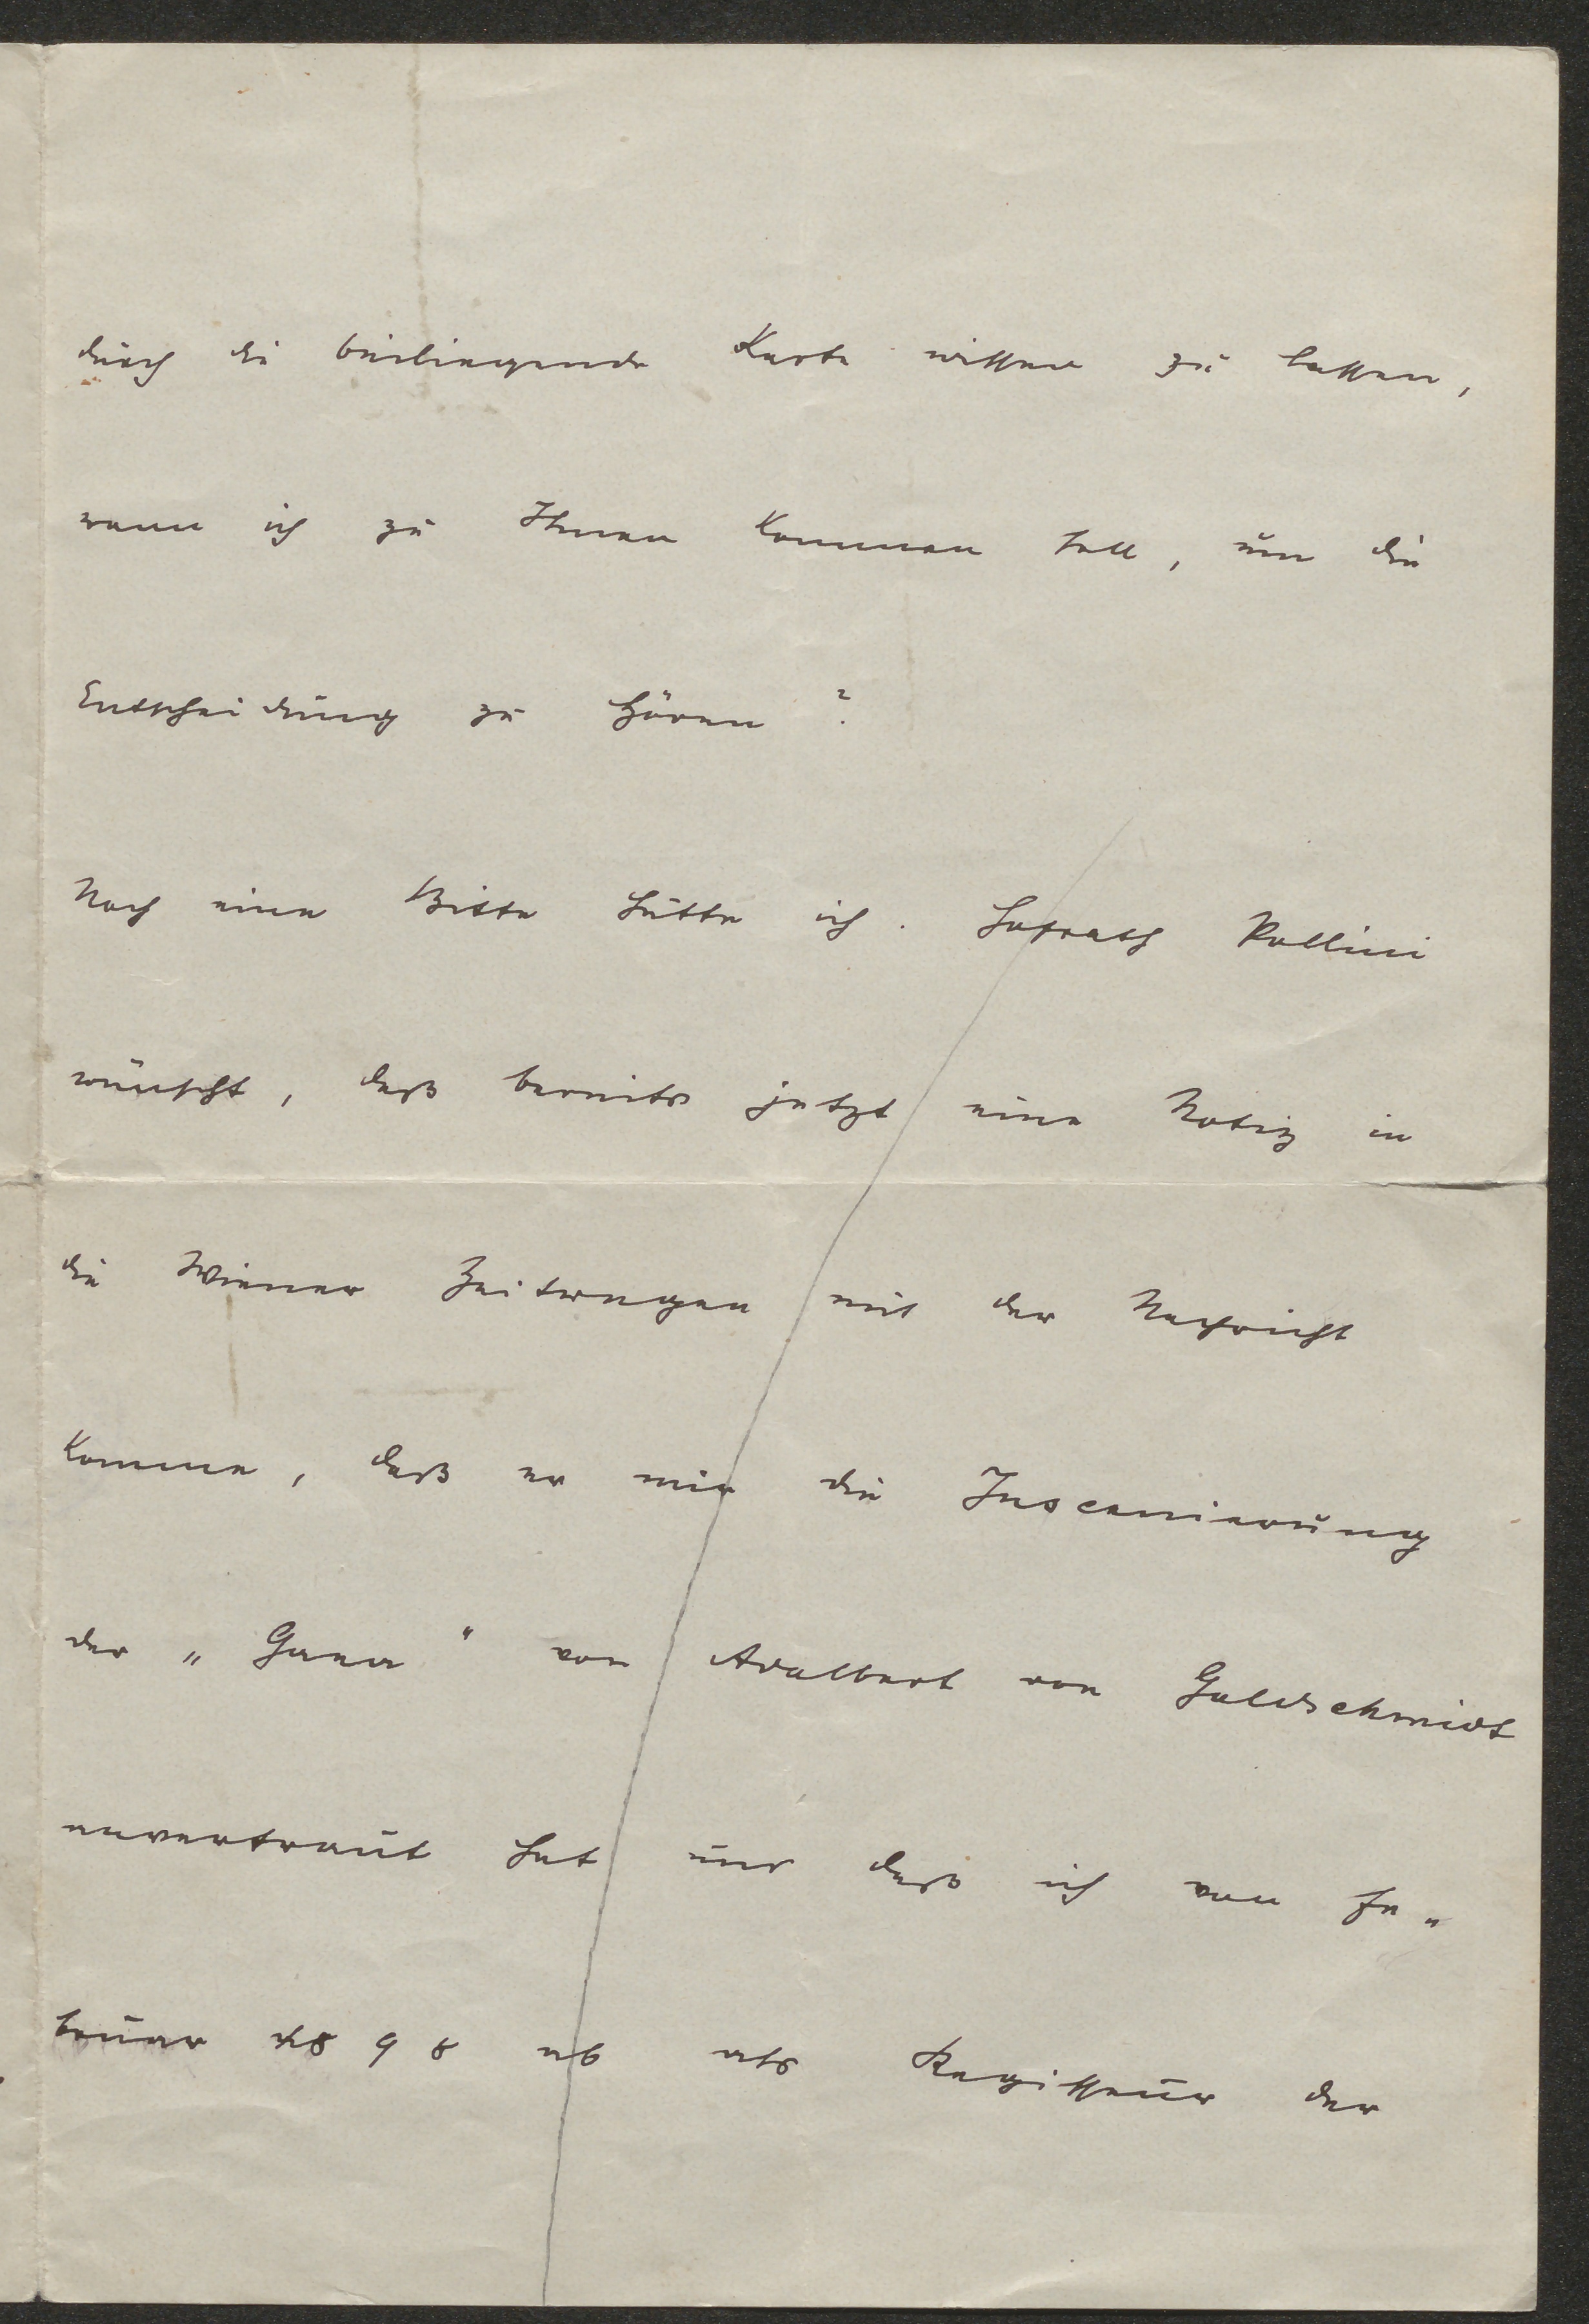 durch die beiliegende Karte wissen zu lassen,
wann ich zu Ihnen kommen soll, um die
Entscheidung zu hören?
Noch eine Bitte hätte ich. Hofrath Pollini
wünscht, daß bereits jetzt eine Notiz in
die Wiener Zeitungen mit der Nachricht
komme, daß er mir die Inscenierung
der „Gaea" von Adalbert von Goldschmidt
anvertraut hat und daß ich von Fe„
bruar 1898 ab als Regisseur der